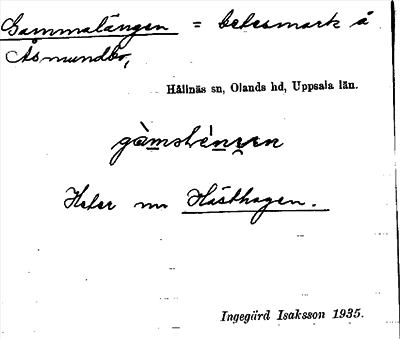 Gammalängen = betesmark å
Åsmundbo,
Hållnäs sn, Olands hd, Uppsala län.
Heter nu Hästhagen.
Ingegärd Isaksson 1935.